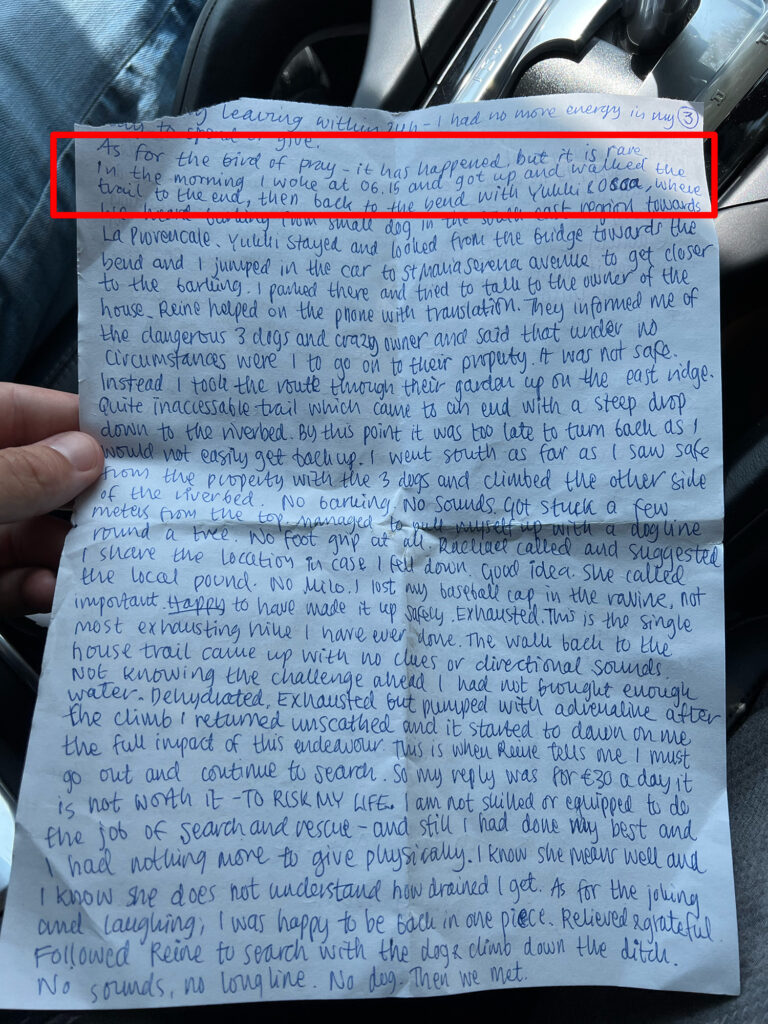 leaving within 24h - I had no more energy in my ③
to spend or give.
As for the bird of pray - it has happened, but it is rare
In the morning I woke at 06.15 and got up and walked the
trail to the end, then back to the bend with Yukki & Osaa, where
we heard barking from small dog in the south east region towards
La Provencale. Yukki stayed and looked from the bridge towards the
bend and I jumped in the car to St Maria Serena avenue to get closer
to the barking. I parked there and tried to talk to the owner of the
house. Reine helped on the phone with translation. They informed me of
the dangerous 3 dogs and crazy owner and said that under no
circumstances were I to go on to their property. It was not safe.
Instead I took the route through their garden up on the east ridge.
Quite inaccessable trail which came to an end with a steep drop
down to the riverbed. By this point it was too late to turn back as I
would not easily get back up. I went south as far as I saw safe
from the property with the 3 dogs and climbed the other side
of the riverbed. No barking. No sounds. Got stuck a few
meters from the top. managed to pull myself up with a dogline
round a tree. No foot grip at all. Rachael called and suggested
I share the location in case I fell down. Good idea. She called
the local pound. No Milo. I lost my baseball cap in the ravine, not
important. Happy to have made it up safely. Exhausted. This is the single
most exhausting hike I have ever done. The walk back to the
house trail came up with no clues or directional sounds.
Not knowing the challenge ahead I had not brought enough
water. Dehydrated, Exhausted but pumped with adrenaline after
the climb I returned unscathed and it started to dawn on me
the full impact of this endeavour. This is when Reine tells me I must
go out and continue to search. So my reply was for €30 a day it
is not worth it - TO RISK MY LIFE. I am not skilled or equipped to do
the job of search and rescue - and still I had done my best and
I had nothing more to give physically. I know she means well and
I know she does not understand how drained I get. As for the joking
and laughing, I was happy to be back in one piece. Relieved & grateful
Followed Reine to search with the dogs & climb down the ditch.
No sounds, no longline. No dog. Then we met.